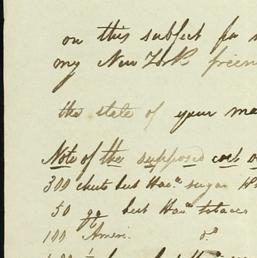 on this subject for
my New York friend
the state of your
Note of the supposed cost
300 chests best Hav.ª sugar
50 do best Havª tobacco
100 Ameri. dº